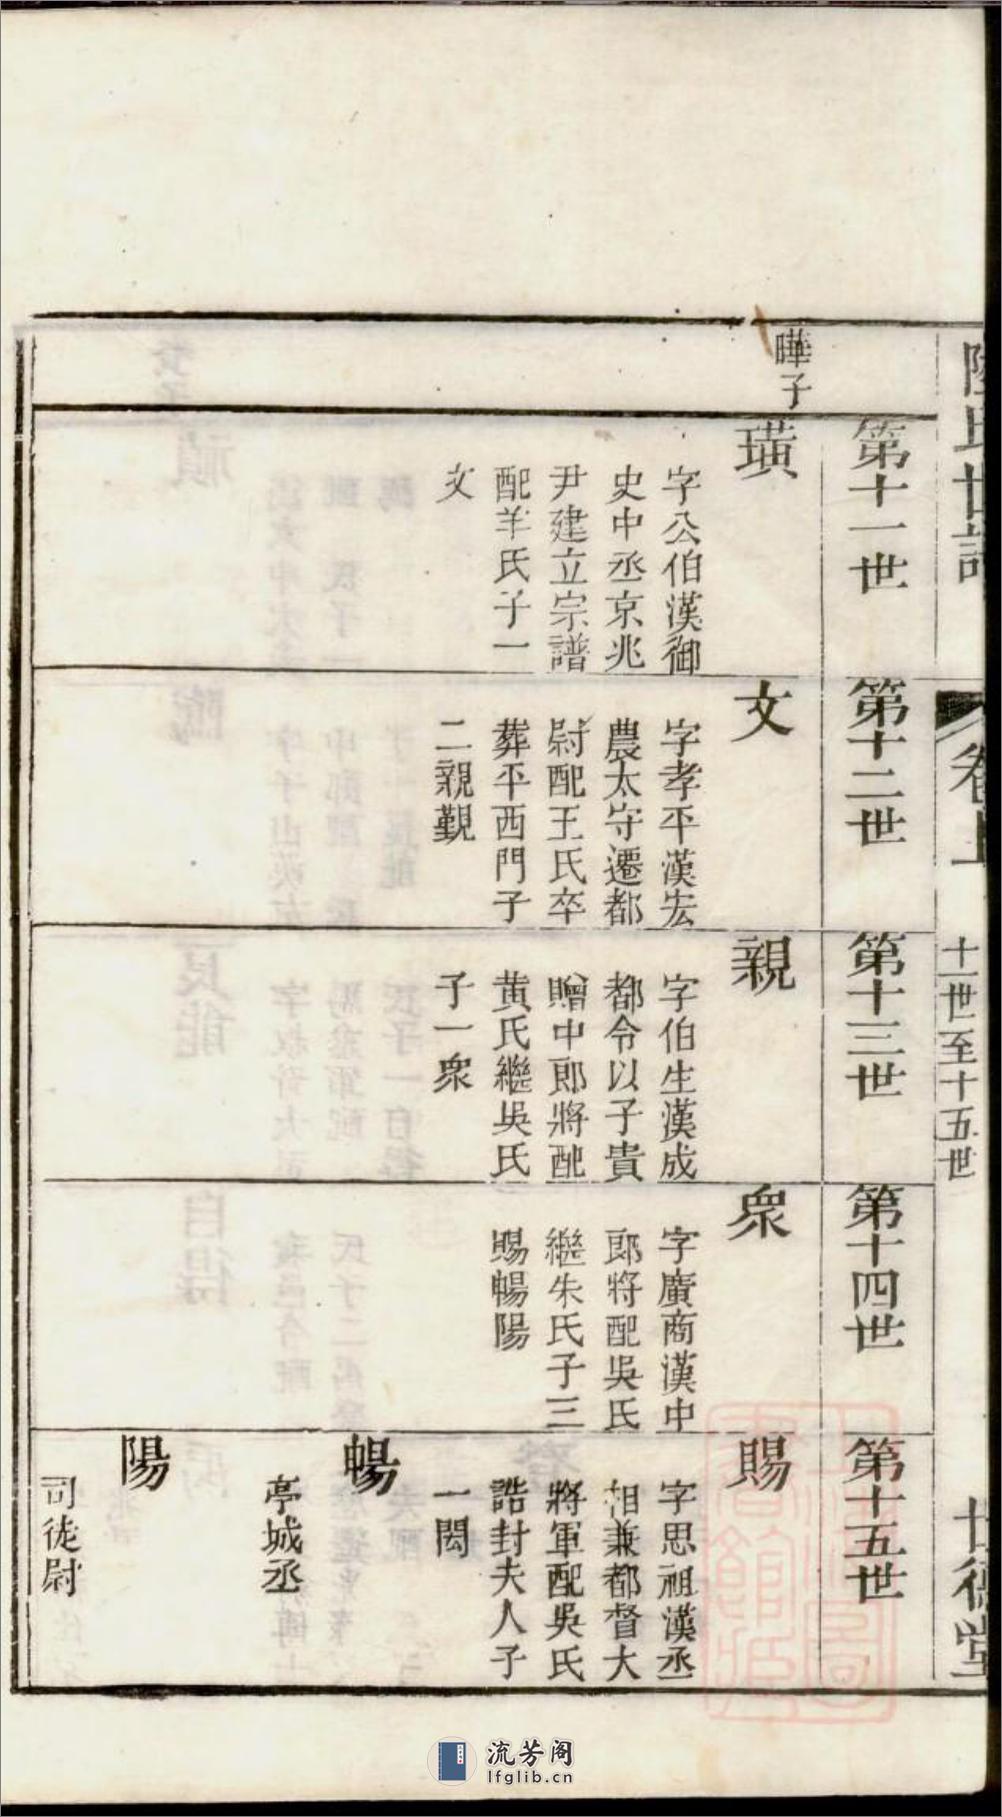 陸氏世譜
卷上
十一世至十五世
世德堂
曄子
第十一世
璜
字公伯漢御
史中丞京兆
尹建立宗譜
配羊氏子一
文
第十二世
文
字孝平漢宏
農太守遷都
尉配王氏卒
葬平西門子
二親觀
第十三世
親
字伯生漢成
都令以子貴
贈中郎將配
黃氏繼吳氏
子一衆
第十四世
衆
字廣商漢中
郎將配吳氏
繼朱氏子三
賜暢陽
第十五世
賜
字思祖漢丞
相兼都督大
將軍配吳氏
誥封夫人子
一閎
暢
亭城丞
陽
司徒尉
流芳阁
lfglib.cn